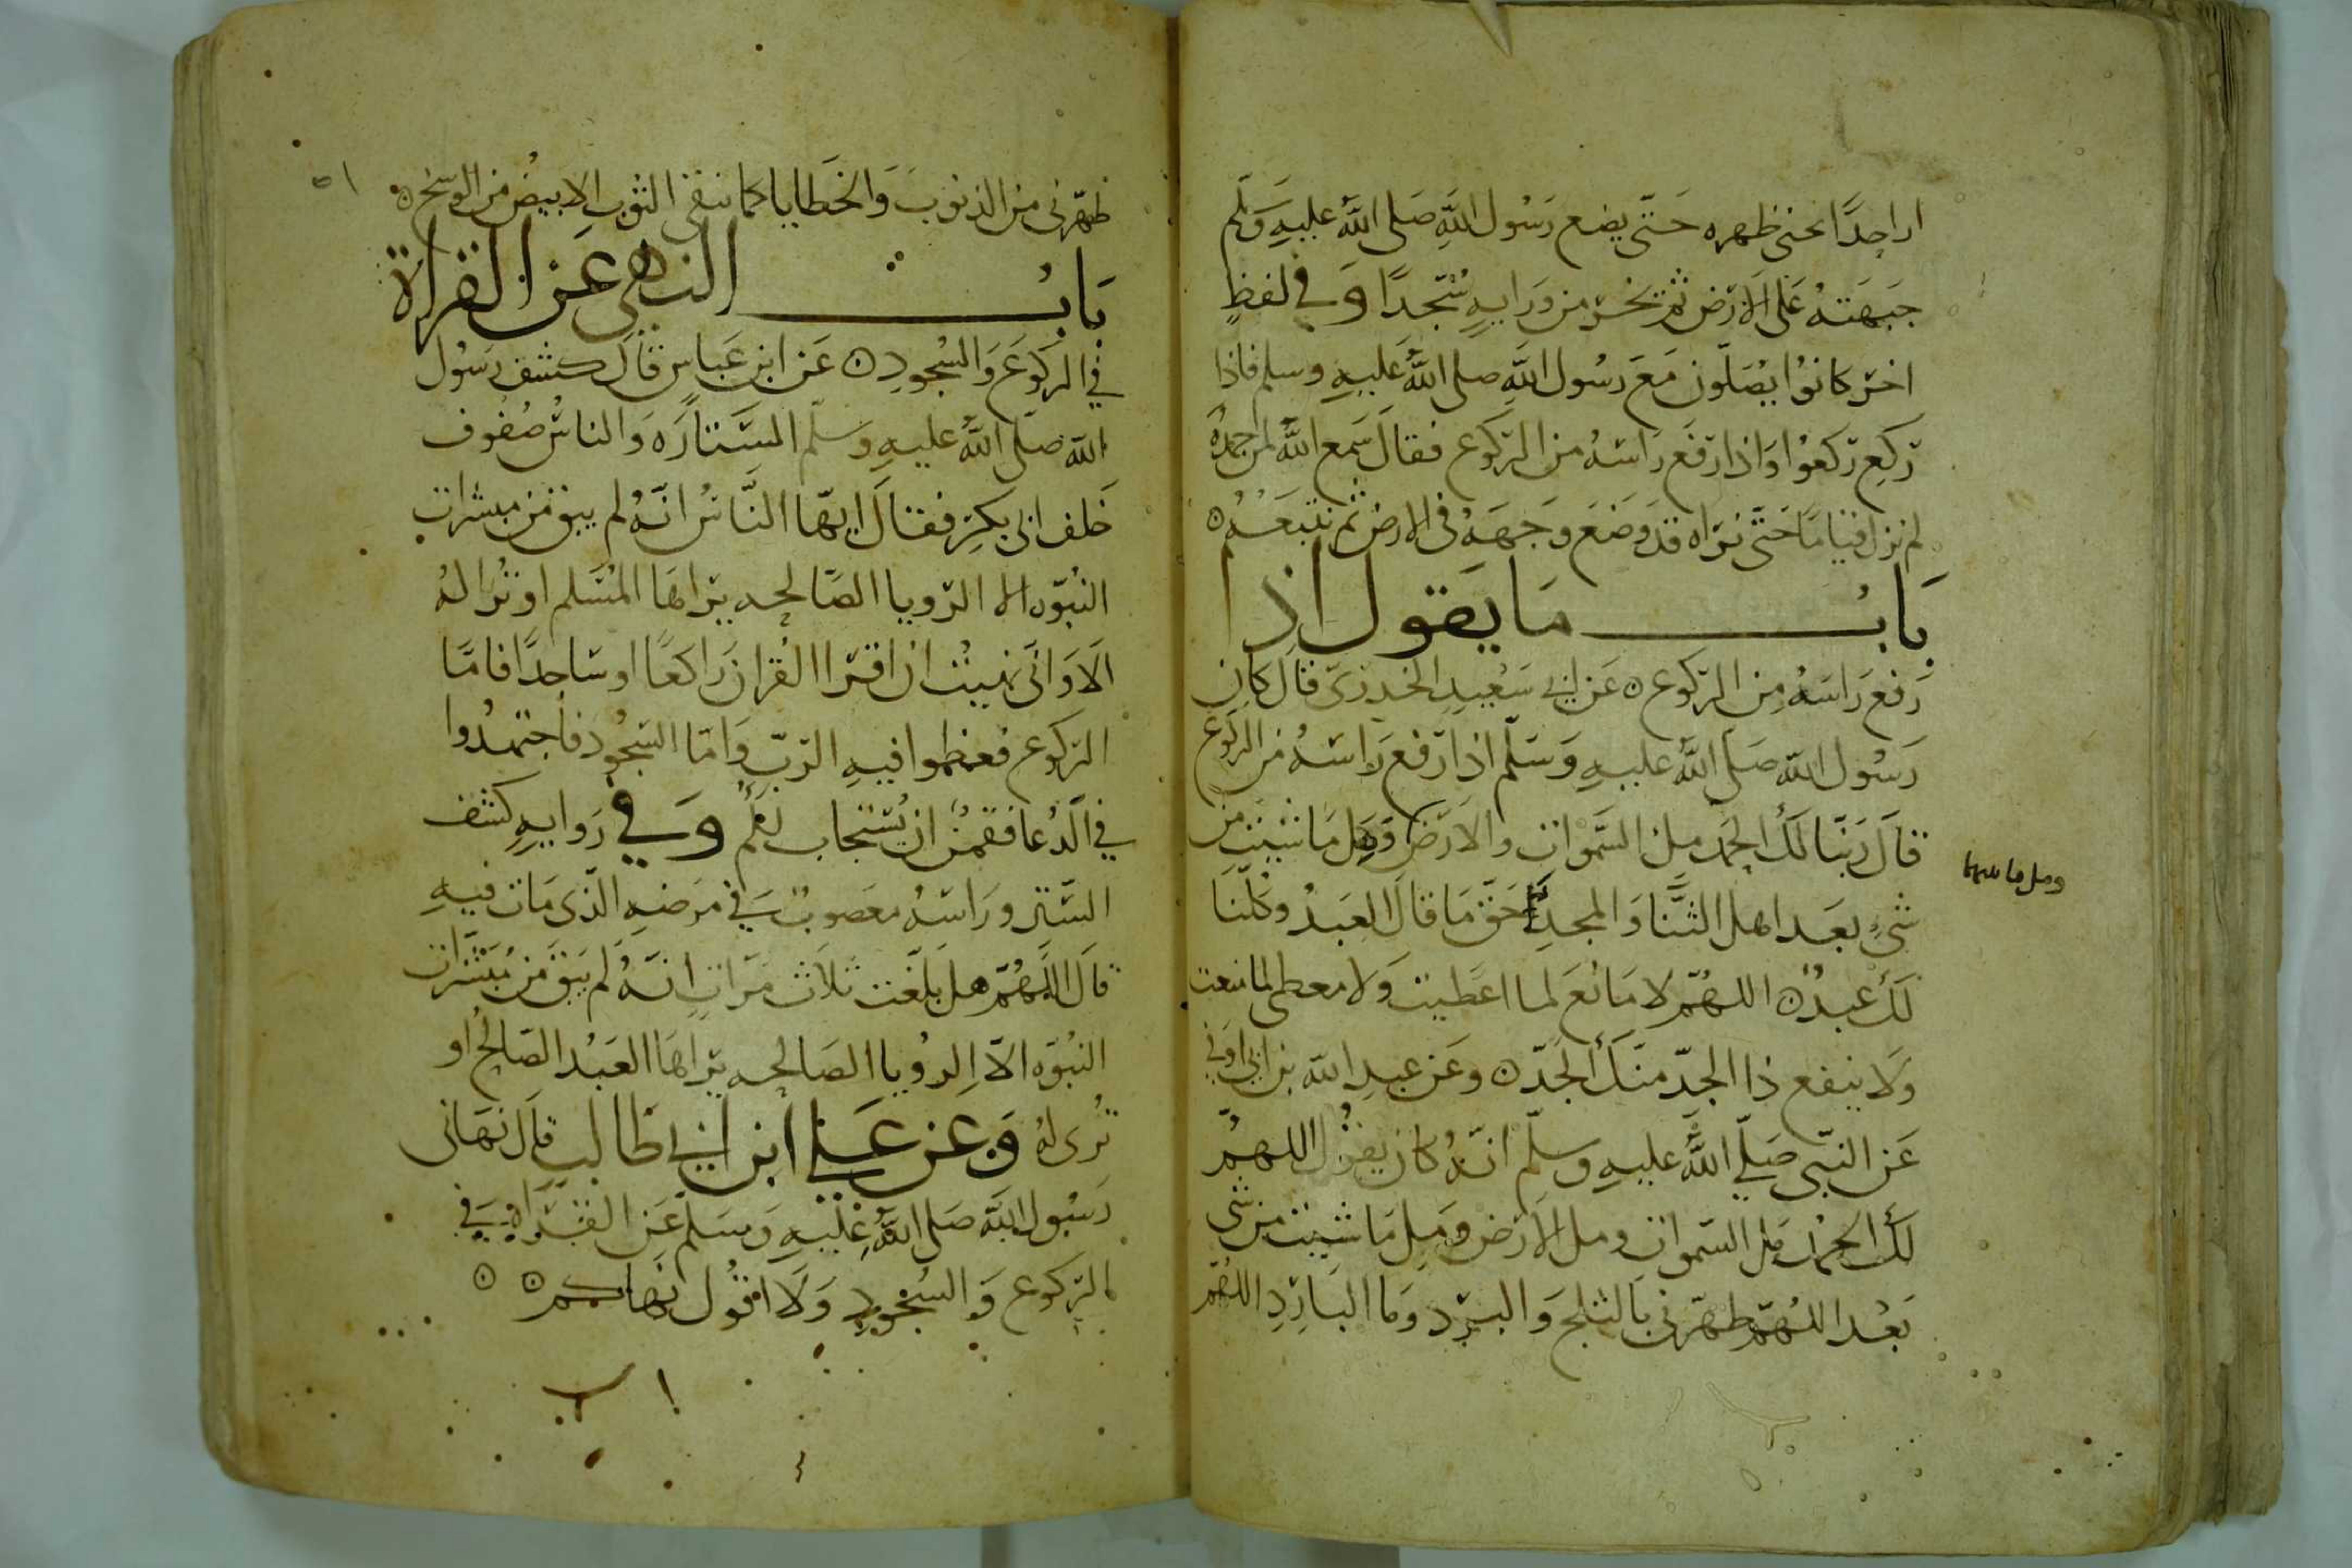 ار احدًا يحنى ظهره حَتّى يضع رَسُول اللَّهِ صَلى اللَّهُ عليهِ وَسَلَم
جَبهَتهُ عَلى الارَض ثم تخر من وَرَايهِ سُجّدًا وَفى لفظٍ
اخر كانوُا يصَلّون مَعَ رسُول اللَّه صلى اللَّهُ عَليهِ وسلم فاذا
رَكع رَكعُوا وَاذا رَفَع رَاسَهُ من الرَكوع فقالَ سَمع اللَّهُ لمن حمدهُ
لم نزل قيامًا حَتَّى نرَاه قدَ وَضَعَ وَجهَهُ فى الارض ثم نتبَعُهُ ٥
بَابُ مَا يَقول اذا
رَفع رَاسَهُ مِن الرَكوع ٥ عَن ابى سَعِيدِ الخدرىّ قالَ كان
رَسُول اللَّه صَلى اللَّهُ عليهِ وَسَلّم اذا رَفع رَاسَهُ من الركوع
قالَ رَبنَا لكَ الحمَد مِل السَّموات والارَض وَمِل مَا شيت من
شىءٍ بعَد اهل الثنَّا وَالمجدِ احَقّ مَا قالَ العَبدُ وكلّنَا
لكَ عبدٌ ٥ اللهُمّ لا مَانعَ لما اعَطيت وَلا معطى لما منعت
وَلَا ينفع ذا الجدّ منكَ الجَدّ ٥ وعَن عبدِ اللَّه بن ابى اوفى
عَن النبّى صَلّى اللَّهُ عليهِ وسلّم انهُ كان يقوُل اللهُمّ
لكَ الحَمُد مِل السّموات ومل الارَض وَمِل مَا شيت من شى
بَعْد اللهُمّ طهرّنى بالثلج وَالبرَد وَما البَارِدِ اللهُمّ
ومل ما بينهما
٥١
طهّرنى من الذنوبَ وَالخَطايا كما ينقى الثوب الابيض من الوسَخ ٥
بَابُ النهى عَن القراة
فى الرَكوعَ وَالسُجودِ ٥ عَن ابن عَباسٍ قالَ كشف رَسُول
اللَّه صَلّى اللَّهُ عليهِ وسلّم السَّتارَه وَالناسُ صُفوف
خَلف ابى بَكرٍ فقالَ ايهّا النَّاسُ انهُ لم يبق من مبشرات
النبُوّه الا الرّويا الصّالحه يرَاهَا المُسَلم او تُرا لهُ
الَا وَانى نهيتُ ان اقرَا القُرانَ رَاكعًا او سَاجدًا فامّا
الرَكوع فعظموا فيهِ الرَبّ وَامّا السّجُود فاجتهدُوا
فى الدُعا فقمنٌ ان يُستَجاب لكُم وَفى رَوايهٍ كشف
السّتر ورَاسَهُ معَصوبٌ فى مرَضهِ الّذى مَات فيهِ
قالَ اللَّهُمّ هل بَلغَّت ثلاَث مَرّاتٍ انهُ لَم يَبقَ مَن مُبَشَّرات
النبُوّه الاّ الرُويا الصَالحه يرَاهَا العَبْد الصَالحُ او
تُرى لهُ وَعن عَلى ابن ابى طَالبٍ قالَ نهَانى
رَسُول اللَّه صَلى اللَّهُ عَليهِ وَسَلمّ عَن القرَاةِ فى
الرّكوع وَالسُجودِ وَلَا اقوُل نَهاكم ٥ ٥